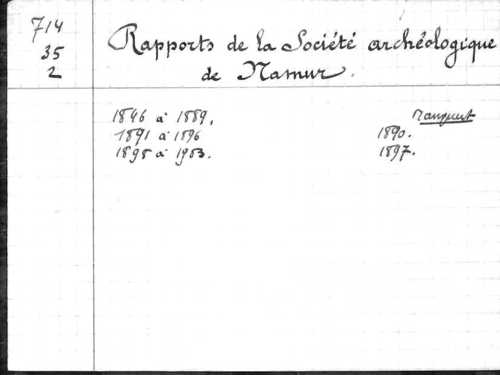 714
35
2
Rapports de la Société archéologique
de Namur.
manquent
1846 à 1889.
1891 à 1896 1890.
1898 à 1903. 1897.